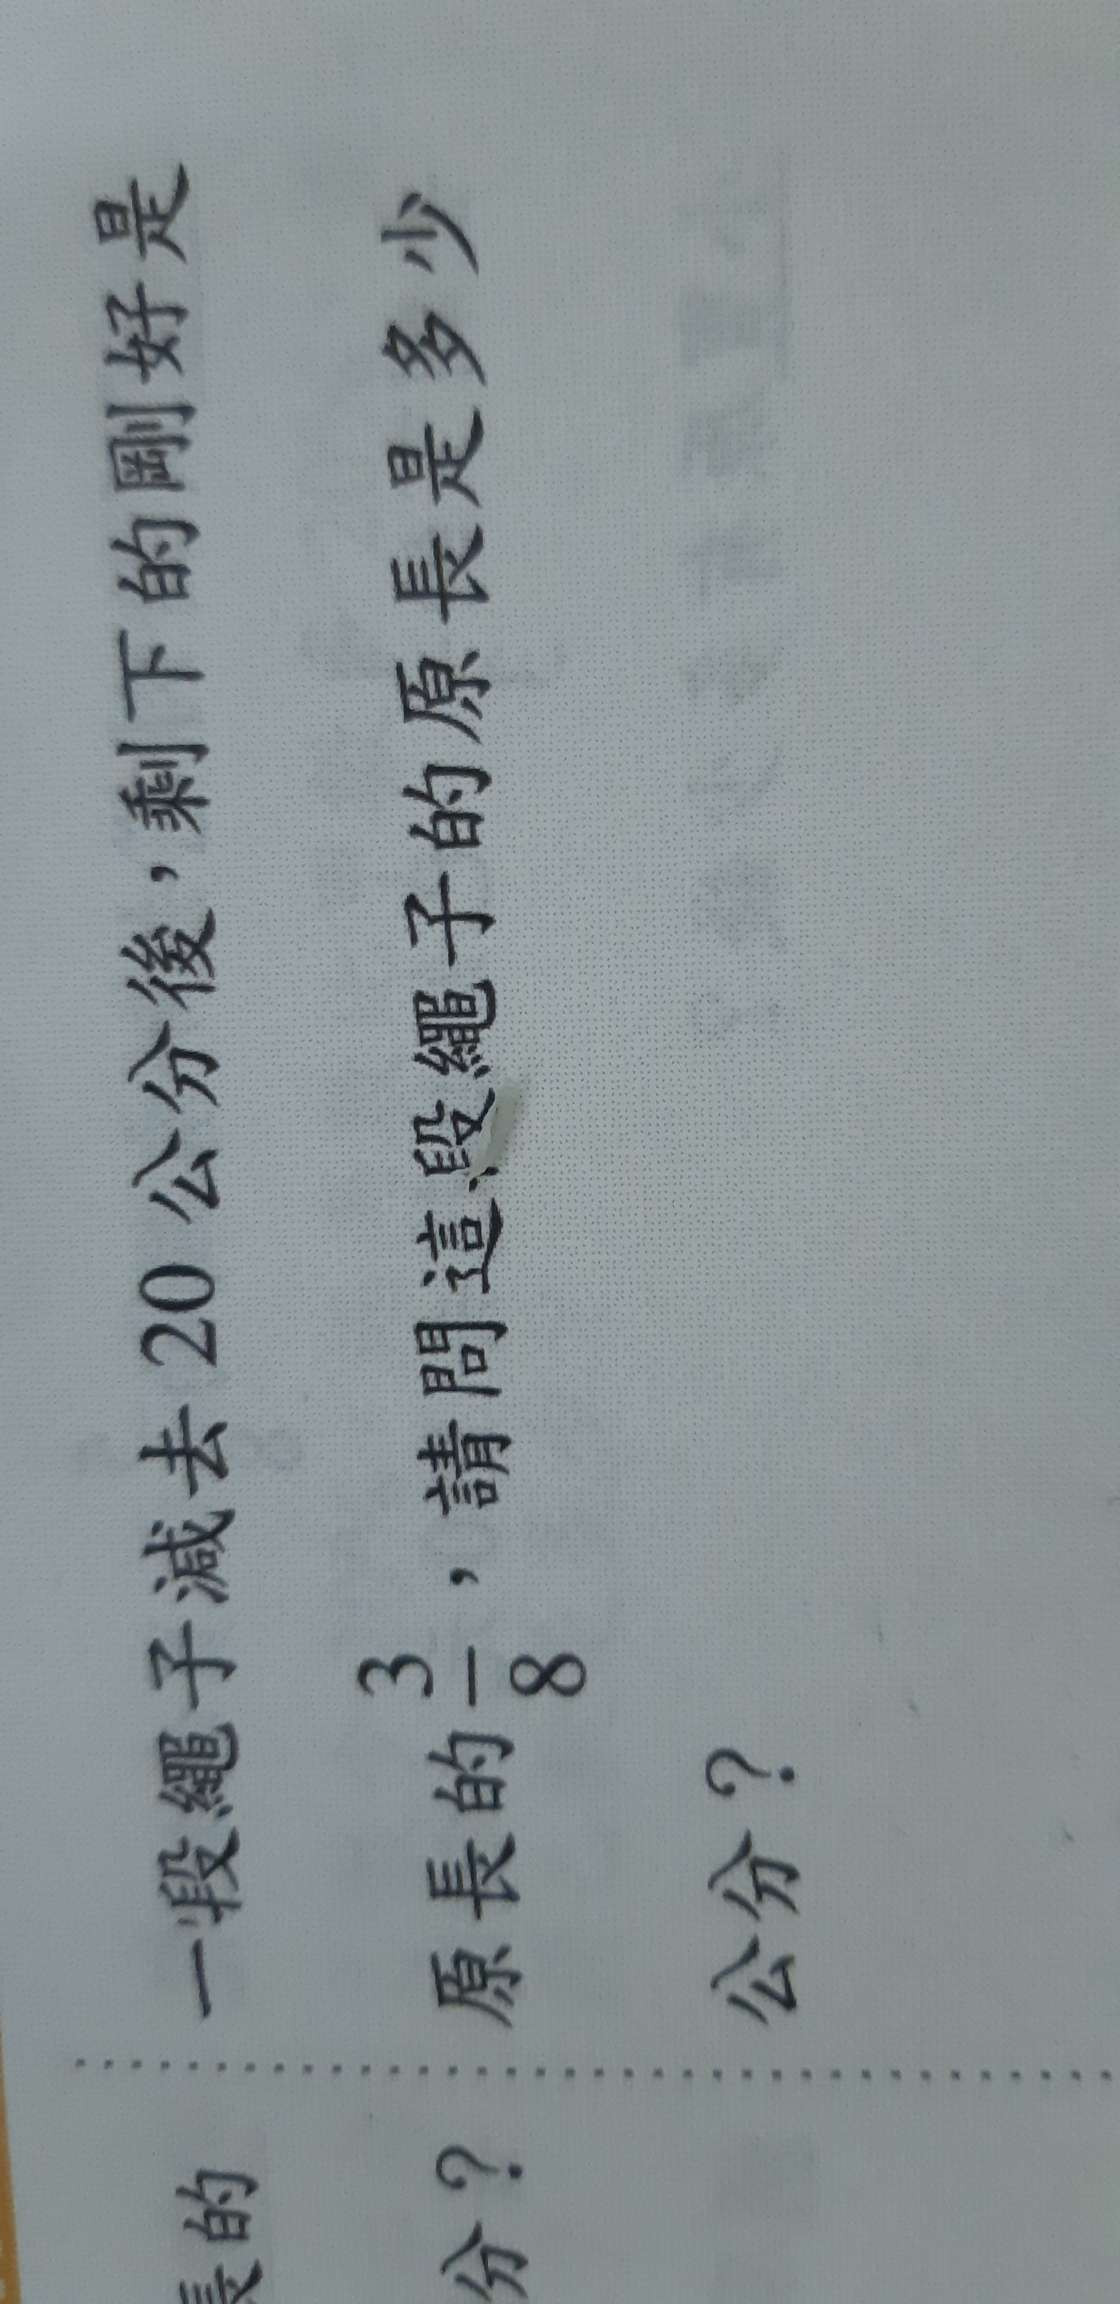 一段繩子減去20公分後，剩下的剛好是
原長的3/8，請問這段繩子的原長是多少
公分？
長的
分？